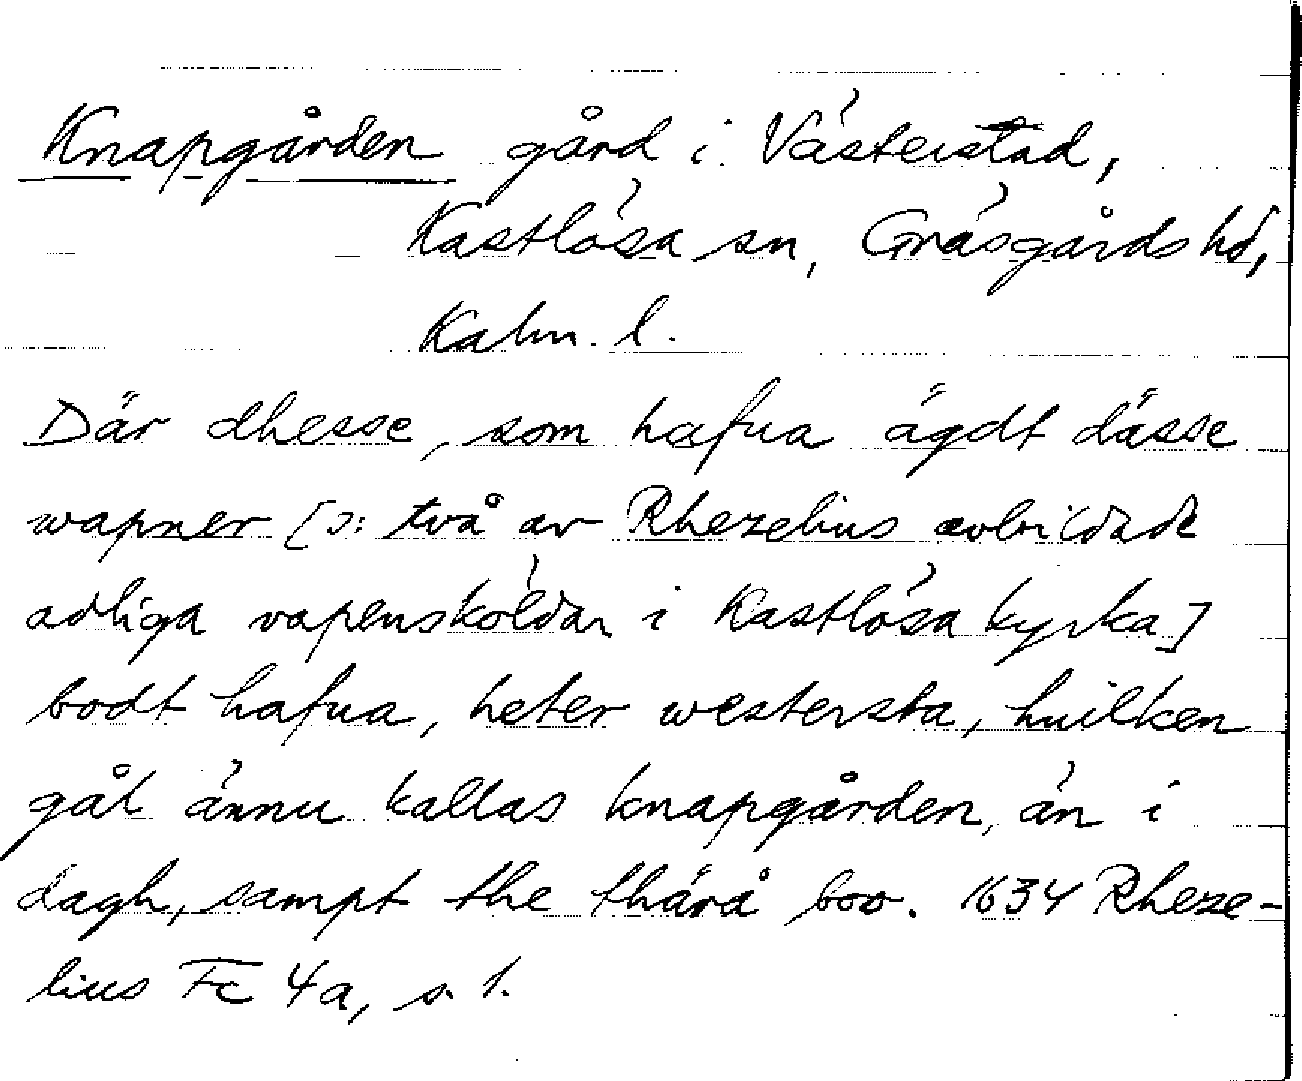 Knapgården gård i Västerstad,
Kastlösa sn, Gräsgårds hd,
Kalm. l.
Där dhesse, som hafua ägdt dässe
wapner [ɔ: två av Rhezelius avbildade
adliga vapensköldar i Kastlösa kyrka]
bodt hafua, heter westersta, huilken
gål ännu kallas knapgården, än i
dagh, sampt the thärå boo. 1634 Rheze-
lius Fc 4a, s. 1.